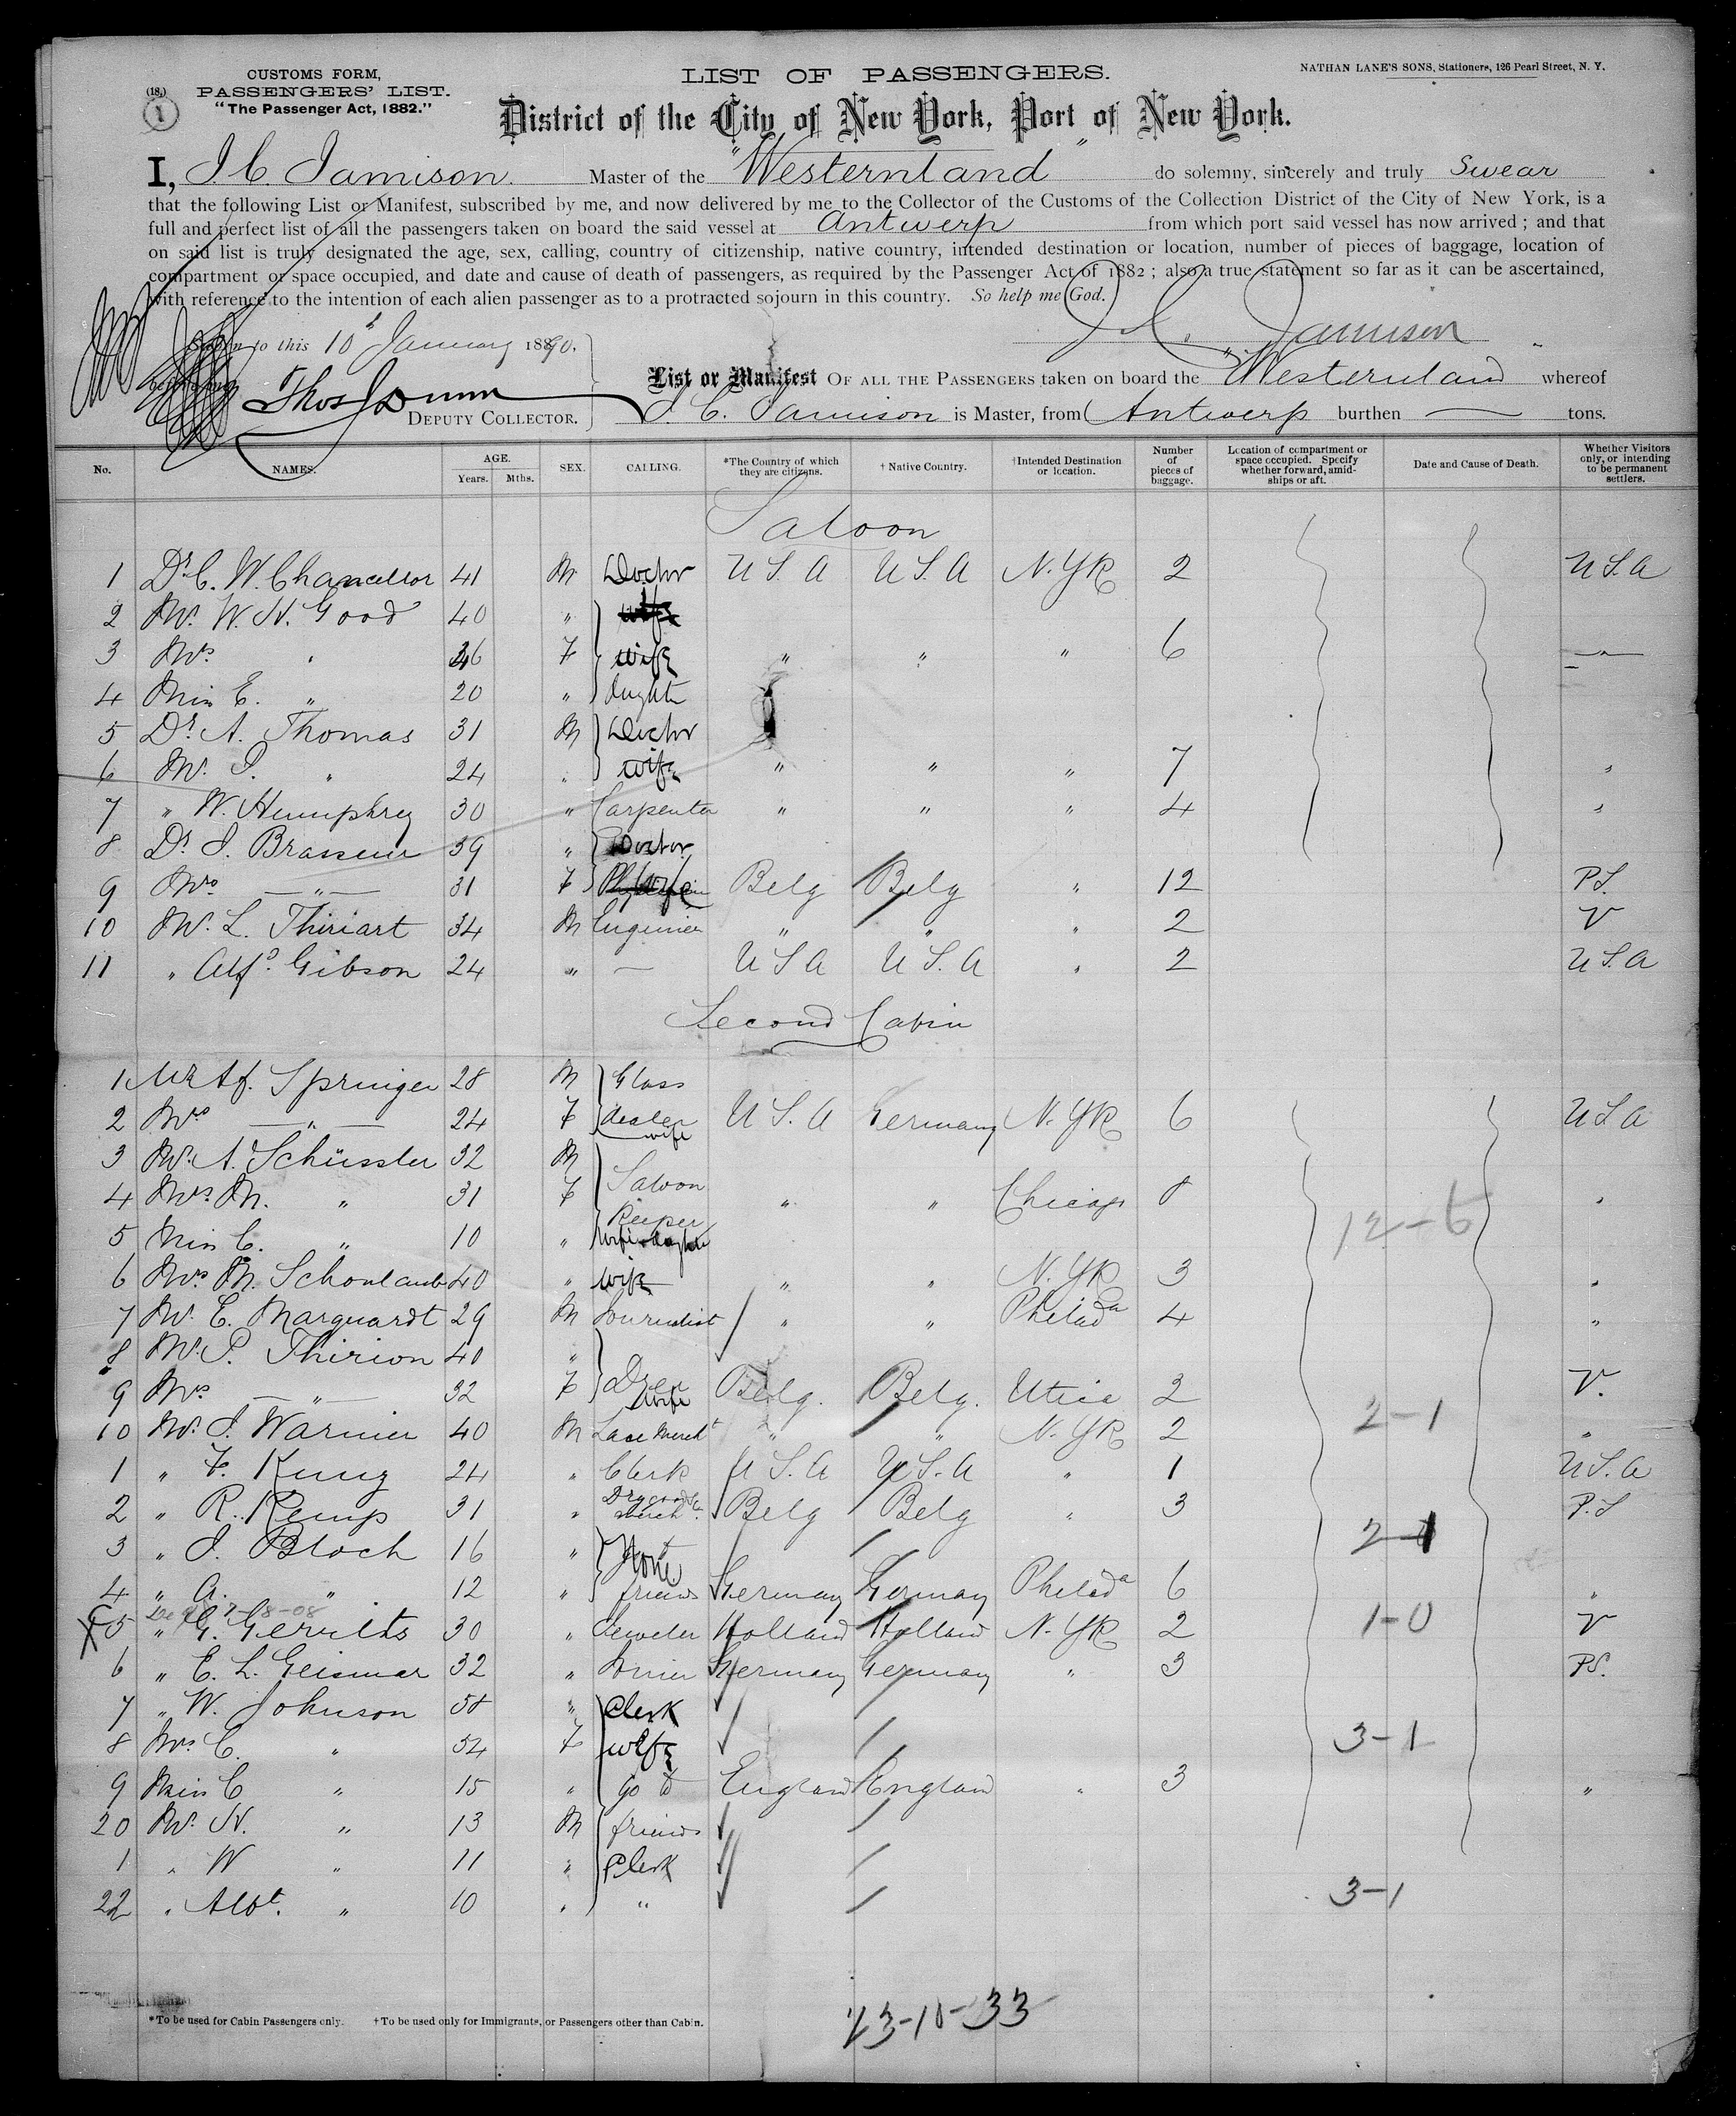 CUSTOMS FORM,
PASSENGERS' LIST.
"The Passenger Act, 1882."
(18.)
1
LIST OF PASSENGERS.
NATHAN LANE'S SONS, Stationers, 126 Pearl Street, N. Y.
District of the City of New York, Port of New York.
I, J. C. Jamison Master of the "Westernland" do solemny, sincerely and truly Swear
that the following List or Manifest, subscribed by me, and now delivered by me to the Collector of the Customs of the Collection District of the City of New York, is a
full and perfect list of all the passengers taken on board the said vessel at Antwerp from which port said vessel has now arrived ; and that
on said list is truly designated the age, sex, calling, country of citizenship, native country, intended destination or location, number of pieces of baggage, location of
compartment or space occupied, and date and cause of death of passengers, as required by the Passenger Act of 1882 ; also a true statement so far as it can be ascertained,
with reference to the intention of each alien passenger as to a protracted sojourn in this country. So help me God.
to this 10th January 1890. J. C. Jamison
List or Manifest OF ALL THE PASSENGERS taken on board the "Westernland" whereof
Thos J Dunn
DEPUTY COLLECTOR.
J. C. Jamison is Master, from Antwerp burthen — tons.
No. NAMES. AGE. Years. Mths. SEX. CALLING. *The Country of which they are citizens. † Native Country. †Intended Destination or location. Number of pieces of baggage. Location of compartment or space occupied. Specify whether forward, amidships or aft. Date and Cause of Death. Whether Visitors only, or intending to be permanent settlers.
Saloon
1 Dr. C. W. Chancellor 41 M Doctor U S. A U S. A N. YK 2 U S. A
2 Mr. W. H. Good 40 "
3 Mrs " 36 F wife " " " 6 "
4 Miss E. " 20 "
5 Dr. A. Thomas 31 M Doctor
6 Mr. " 24 " wife " " " 7 "
7 " W. Humphrey 30 " Carpenter " " " 4 "
8 Dr. J. Brasseur 39 " Doctor
9 Mrs — " — 31 F Wife Belg Belg " 12 P S.
10 Mr. L. Thiriart 34 M Engineer " " " 2 V
11 " Alfd. Gibson 24 " — U S A U S. A " 2 U S. A
Second Cabin
1 Mr Af. Springer 28 M Glass
2 Mrs — " — 24 F dealer wife U S. A Germany N. YK 6 U S A
3 Mr. A. Schüssler 32 M
4 Mrs M. " 31 F Saloon " " Chicago 8 "
Keeper
5 Miss C. " 10 " Wife & daughter
12-6
6 Mrs M. Schonlaub 40 " wife " " N. YK 3 "
7 Mr. E. Marquardt 29 M Journalist " " Philada 4 "
8 Mr. P. Thirion 40 "
9 Mrs — " — 32 F Wife Belg. Belg. Utica 2 V.
10 Mr. J. Warnier 40 M Lace Mercht " " N. YK 2 2-1 "
1 " F. Kung 24 " Clerk U S. A U S. A " 1 U S. A
2 " R. Kemp 31 " Dry goods merch. Belg Belg " 3 P. S
3 " J. Bloch 16 " 2-1
4 " A. " 12 " friends Germany Germany Philada 6 "
5 " G. Gerrits 30 " Jeweler Holland Holland N. YK 2 1-0 V
6 " E. L. Geismar 32 " Germany Germany " 3 P S.
7 " W. Johnson 58 " Clerk
8 Mrs C. " 54 F wife 3-1
9 Miss C " 15 " go to England England " 3 "
20 Mr. H. " 13 M friends
1 " W " 11 " Clerk
22 " Albt. " 10 " " 3-1
23-10-33
*To be used for Cabin Passengers only. †To be used only for Immigrants, or Passengers other than Cabin.